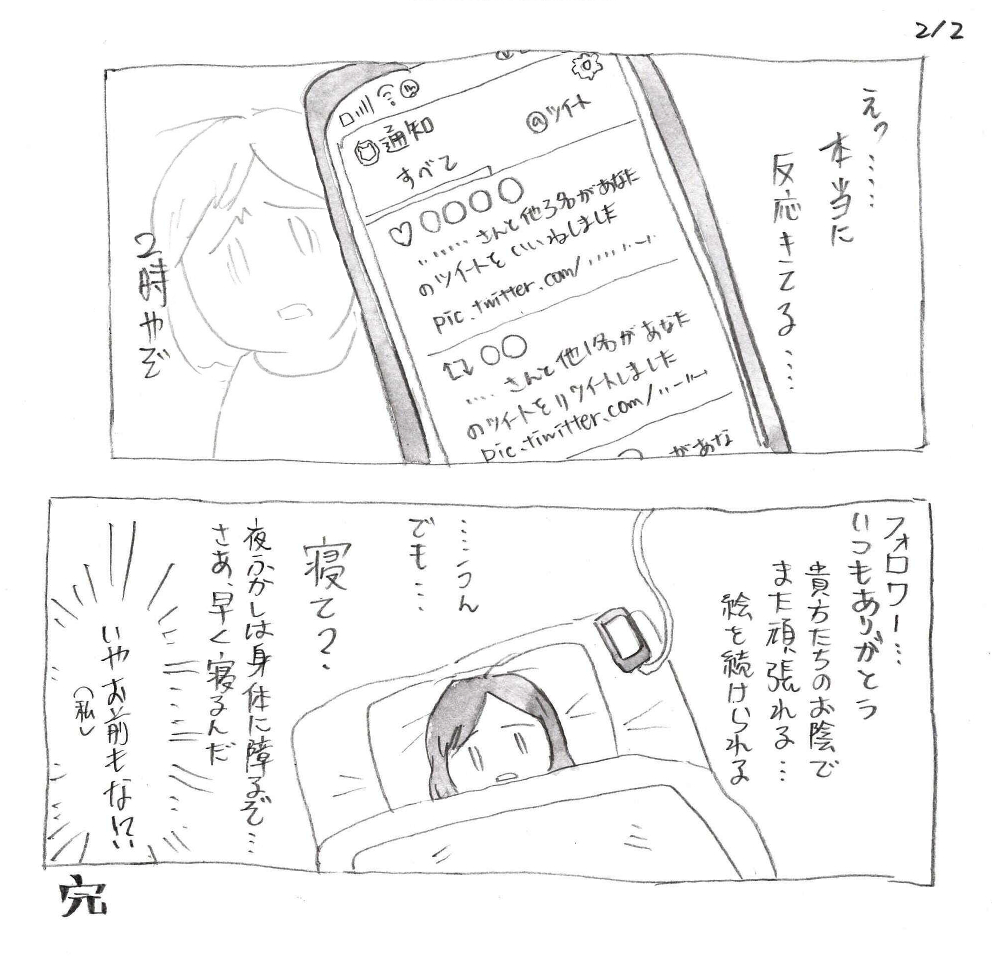 2/2
えっ……
本当に
反応きてる…
通知
@ツイート
すべて
♡○○○○○
……さんと他3名があなた
のツイートをいいねしました
pic.twitter.com/……
○○
……さんと他1名があなた
のツイートをリツイートしました
pic.twitter.com/……
があな
2時やぞ
フォロワー…
いつもありがとう
貴方たちのお陰で
また頑張れる…
絵を続けられる
……うん
でも…
寝て?
夜ふかしは身体に障るぞ…
さあ、早く寝るんだ
いやお前もな!?
(私)
完